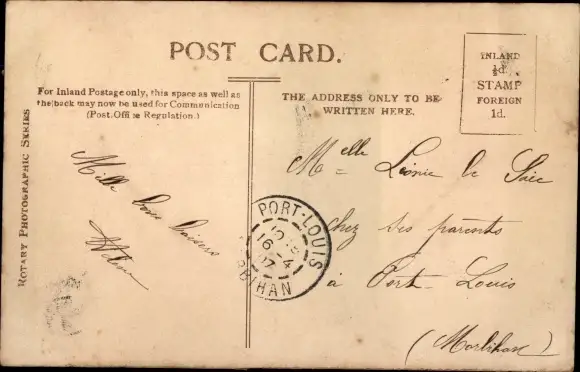 POST CARD.
For Inland Postage only, this space as well as
the back may now be used for Communication
(Post Office Regulation.)
THE ADDRESS ONLY TO BE
WRITTEN HERE.
INLAND
½d.
STAMP
FOREIGN
1d.
ROTARY PHOTOGRAPHIC SERIES
Mille bons baisers
Melle Léonie le
chez ses parents
à Port-Louis
(Morbihan)
PORT-LOUIS
16-4
07
BIHAN